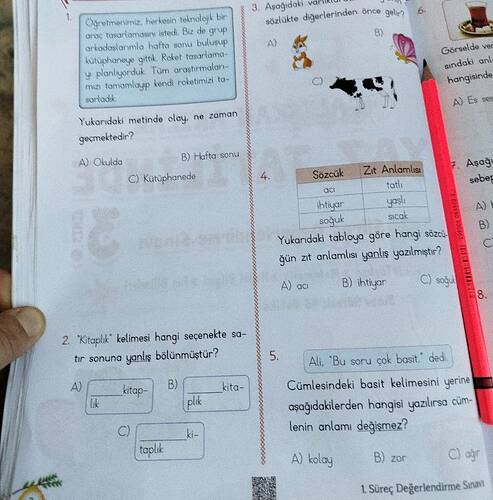 1.
Öğretmenimiz, herkesin teknolojik bir
araç tasarlamasını istedi. Biz de grup
arkadaşlarımla hafta sonu buluşup
kütüphaneye gittik. Roket tasarlama-
yı planlıyorduk. Tüm araştırmaları-
mızı tamamlayıp kendi roketimizi ta-
sarladık.
Yukarıdaki metinde olay, ne zaman
geçmektedir?
A) Okulda
B) Hafta sonu
C) Kütüphanede
2. "Kitaplık" kelimesi hangi seçenekte sa-
tır sonuna yanlış bölünmüştür?
A) ______kitap-
lık
B) ______kita-
plık
C) ______ki-
taplık
3. Aşağıdaki
sözlükte diğerlerinden önce gelir?
A)
B)
C)
4.
Sözcük Zıt Anlamlısı
acı tatlı
ihtiyar yaşlı
soğuk sıcak
Yukarıdaki tabloya göre hangi sözcü-
ğün zıt anlamlısı yanlış yazılmıştır?
A) acı
B) ihtiyar
C)
5.
Ali, "Bu soru çok basit." dedi.
Cümlesindeki basit kelimesinin yerine
aşağıdakilerden hangisi yazılırsa cüm-
lenin anlamı değişmez?
A) kolay
B) zor
C)
6.
Görselde
hangisinde
A) Es
7.
A)
B)
C
8.
1. Süreç Değerlendirme Sınavı